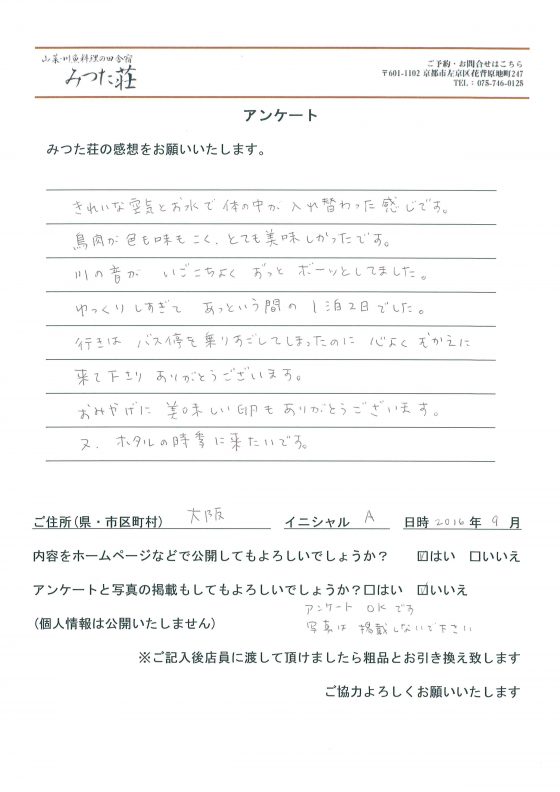 山菜・川魚料理の田舎宿
みつた荘
ご予約・お問合せはこちら
〒601-1102 京都市左京区花脊原地町247
TEL：075-746-0128
アンケート
みつた荘の感想をお願いいたします。
きれいな空気とお水で体の中が入れ替わった感じです。
鳥肉が色も味もこく、とても美味しかったです。
川の音が いごこちよく ずっと ボーッとしてました。
ゆっくりしすぎて あっという間の 1泊2日でした。
行きは バス停を乗りすごしてしまったのに 心よく むかえに
来て下さり ありがとうございます。
おみやげに 美味しい卵もありがとうございます。
又、ホタルの時季に来たいです。
ご住所(県・市区町村) 大阪 イニシャル A 日時 2016年 9月
内容をホームページなどで公開してもよろしいでしょうか？ ☑はい □いいえ
アンケートと写真の掲載もしてもよろしいでしょうか？□はい ☑いいえ
アンケート OKです
(個人情報は公開いたしません) 写真は 掲載しないで下さい
※ご記入後店員に渡して頂けましたら粗品とお引き換え致します
ご協力よろしくお願いいたします